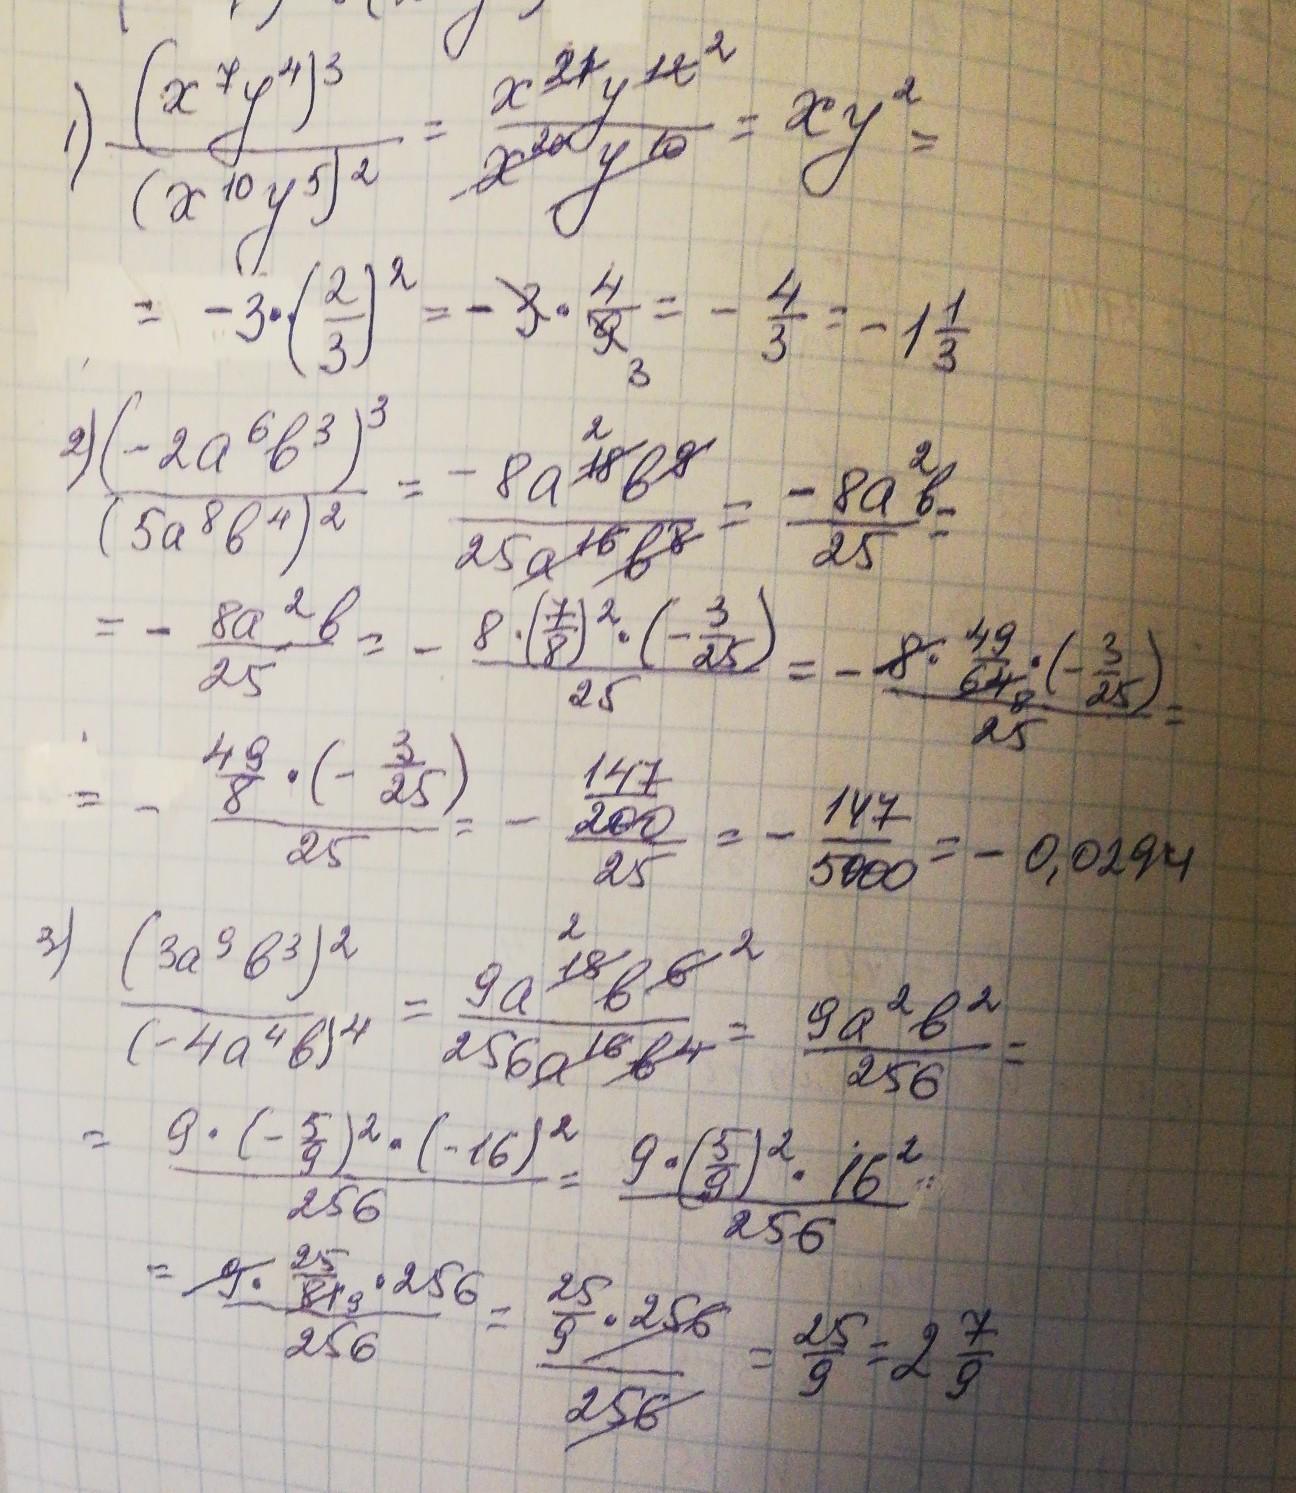 1) (x⁷y⁴)³/(x¹⁰y⁵)² = x²¹y¹²²/x²⁰y¹⁰ = xy² =
= -3·(2/3)² = -3·4/9₃ = -4/3 = -1 1/3
2) (-2a⁶b³)³/(5a⁸b⁴)² = -8a¹⁸²b⁹/25a¹⁶b⁸ = -8a²b/25 =
= - 8a²b/25 = - 8·(7/8)²·(-3/25)/25 = - 8·49/64₈·(-3/25)/25 =
= - 49/8·(-3/25)/25 = - 147/200/25 = - 147/5000 = - 0,0294
3) (3a⁹b³)²/(-4a⁴b)⁴ = 9a¹⁸²b⁶²/256a¹⁶b⁴ = 9a²b²/256 =
= 9·(-5/9)²·(-16)²/256 = 9·(5/9)²·16²/256 =
= 9·25/81₉·256/256 = 25/9·256/256 = 25/9 = 2 7/9